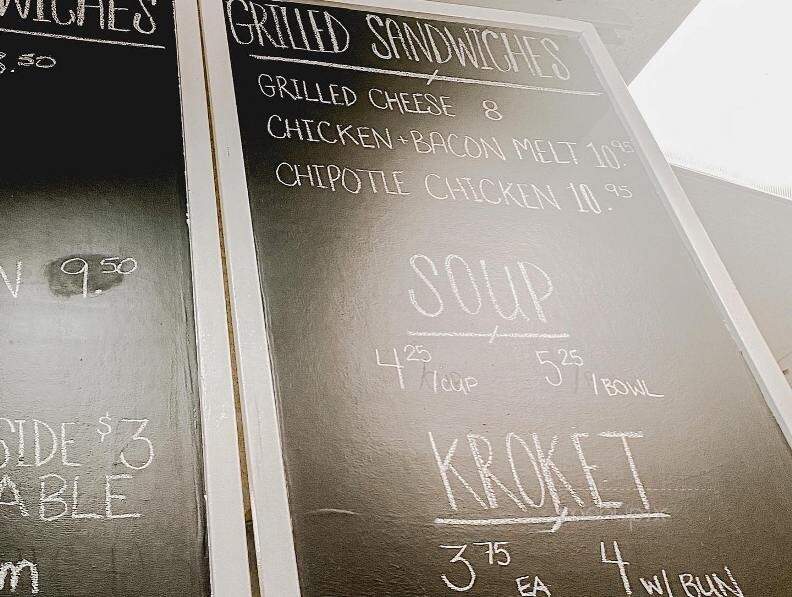 WICHES
8.50
N 9.50
SIDE $3
ABLE
m
GRILLED SANDWICHES
GRILLED CHEESE 8
CHICKEN+BACON MELT 10.95
CHIPOTLE CHICKEN 10.95
SOUP
4 25 /CUP 5 25 /BOWL
KROKET
3 75 EA 4 W/ BUN